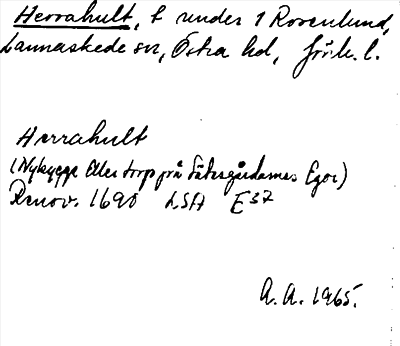 Herrahult, t under 1 Rosenlund,
Lannaskede sn, Östra hd, Jönk. l.
Herrahult
(Nybygge Eller torp på Sätesgårdarnes Egor)
Renov. 1690 LSA E37
A. A. 1965.